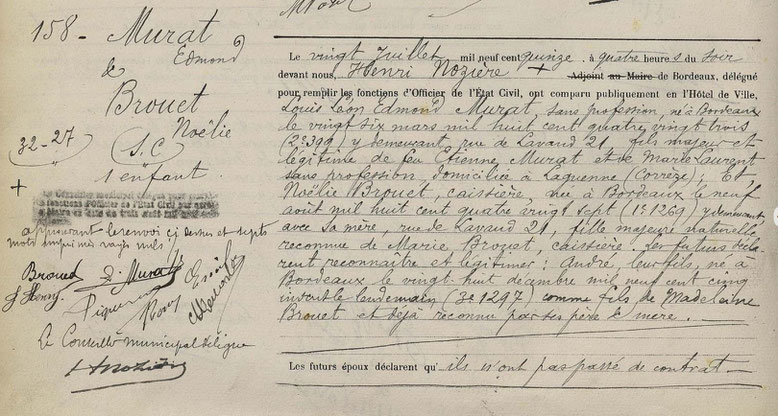 158 - Murat
Edmond
&
Brouet
Noëlie
32-27 S.C
1 enfant
+
approuvant le renvoi ci dessus et sept
mots imprimés rayés nuls.
Brouet E. Murat
J Henry
Le Conseiller municipal délégué
HNozière
Le vingt Juillet, mil neuf cent quinze, à quatre heures du soir
devant nous, Henri Nozière + Adjoint au Maire de Bordeaux, délégué
pour remplir les fonctions d'Officier de l'État Civil, ont comparu publiquement en l'Hôtel de Ville,
Louis Léon Edmond Murat, sans profession, né à Bordeaux
le vingt six mars mil huit cent quatre vingt trois
(2e 399) y demeurant, rue de Lavaud 21, fils majeur et
légitime de feu Étienne Murat et de Marie Laurent
sans profession domiciliée à Laguenne (Corrèze); Et,
Noëlie Brouet, caissière, née à Bordeaux le neuf
août mil huit cent quatre vingt sept (1e 1269) y demeurant
avec sa mère, rue de Lavaud 21, fille majeure naturelle
reconnue de Marie Brouet, caissière. Les futurs décla-
rent reconnaître et légitimer: André, leur fils, né à
Bordeaux le vingt-huit décembre mil neuf cent cinq
inscrit le lendemain (3e 1297) comme fils de Madeleine
Brouet et déjà reconnu par ses père & mère. -
Les futurs époux déclarent qu'ils n'ont pas passé de contrat -